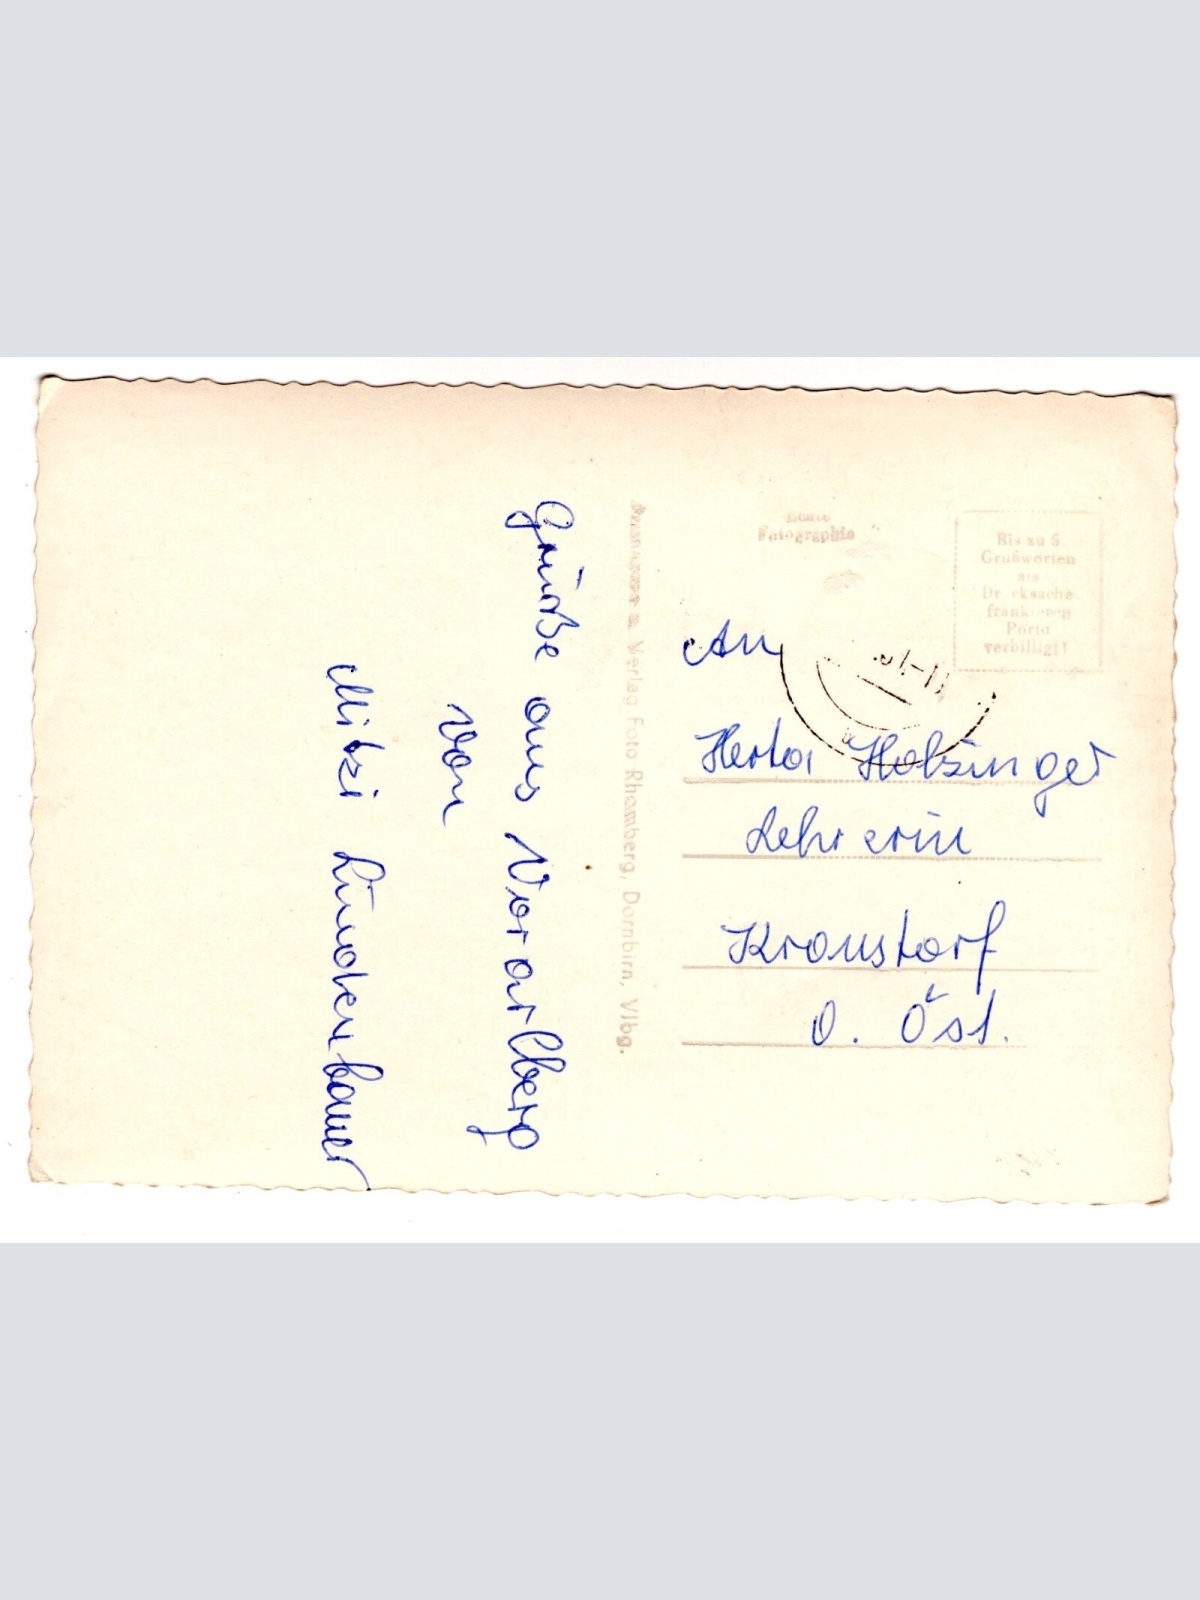 Grüße aus Vorarlberg
von
Mitzi Lindenbauer
Verlag Foto Rhomberg, Dornbirn, Vlbg.
Echte
Fotographie
Bis zu 5
Grußworten
als
Drucksache
frankieren
Porto
verbilligt!
An
Herta Holzinger
Lehrerin
Kronstorf
O. Öst.